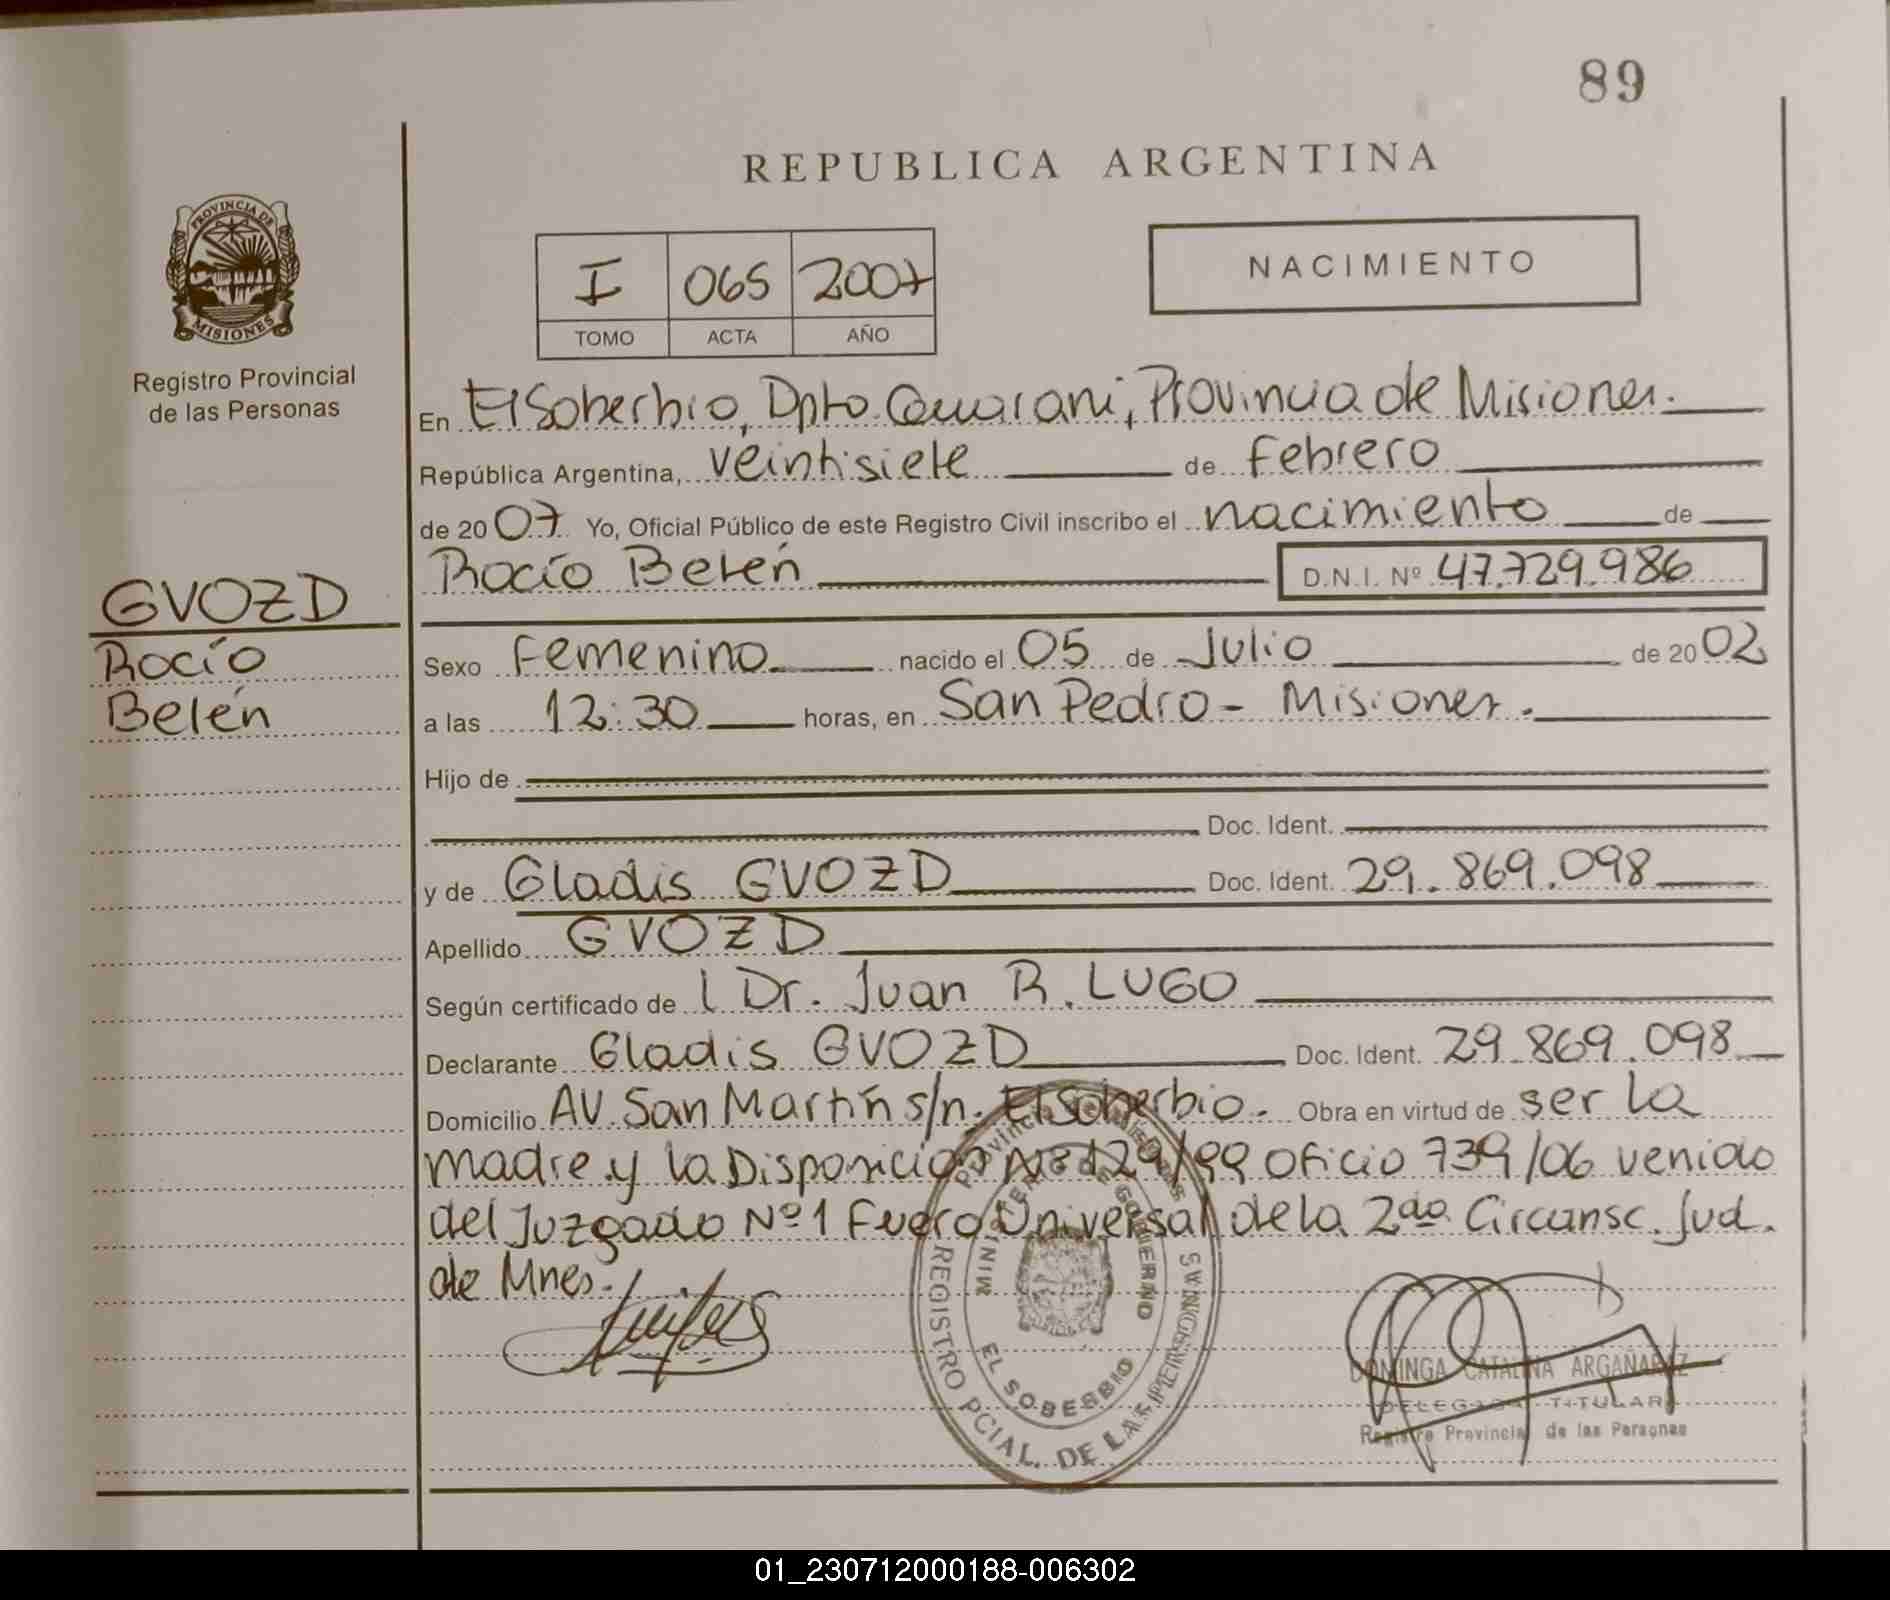 89
REPUBLICA ARGENTINA
PROVINCIA DE
MISIONES
Registro Provincial
de las Personas
I 065 2007
TOMO ACTA AÑO
NACIMIENTO
En El Soberbio, Dpto. Guarani, Provincia de Misiones.
República Argentina, veintisiete de Febrero
de 2007 Yo, Oficial Público de este Registro Civil inscribo el nacimiento de
Rocío Belén D.N.I. Nº 47.729.986
GVOZD
Rocío
Belén
Sexo Femenino nacido el 05 de Julio de 2002
a las 12:30 horas, en San Pedro - Misiones.
Hijo de
Doc. Ident.
y de Gladis GVOZD Doc. Ident. 29.869.098
Apellido GVOZD
Según certificado de l Dr. Juan R. LUGO
Declarante Gladis GVOZD Doc. Ident. 29.869.098
Domicilio AV. San Martín s/n. El Soberbio. Obra en virtud de ser la
madre y la Disposición Nº 129/99 Oficio 739/06 venido
del Juzgado Nº 1 Fuero Universal de la 2da. Circunsc. Jud.
de Mnes.
REGISTRO PCIAL. DE LAS PERSONAS
MINISTERIO DE GOBIERNO
EL SOBERBIO
DOMINGA CATALINA ARGAÑARAZ
DELEGADA TITULAR
Registro Provincial de las Personas
01_230712000188-006302